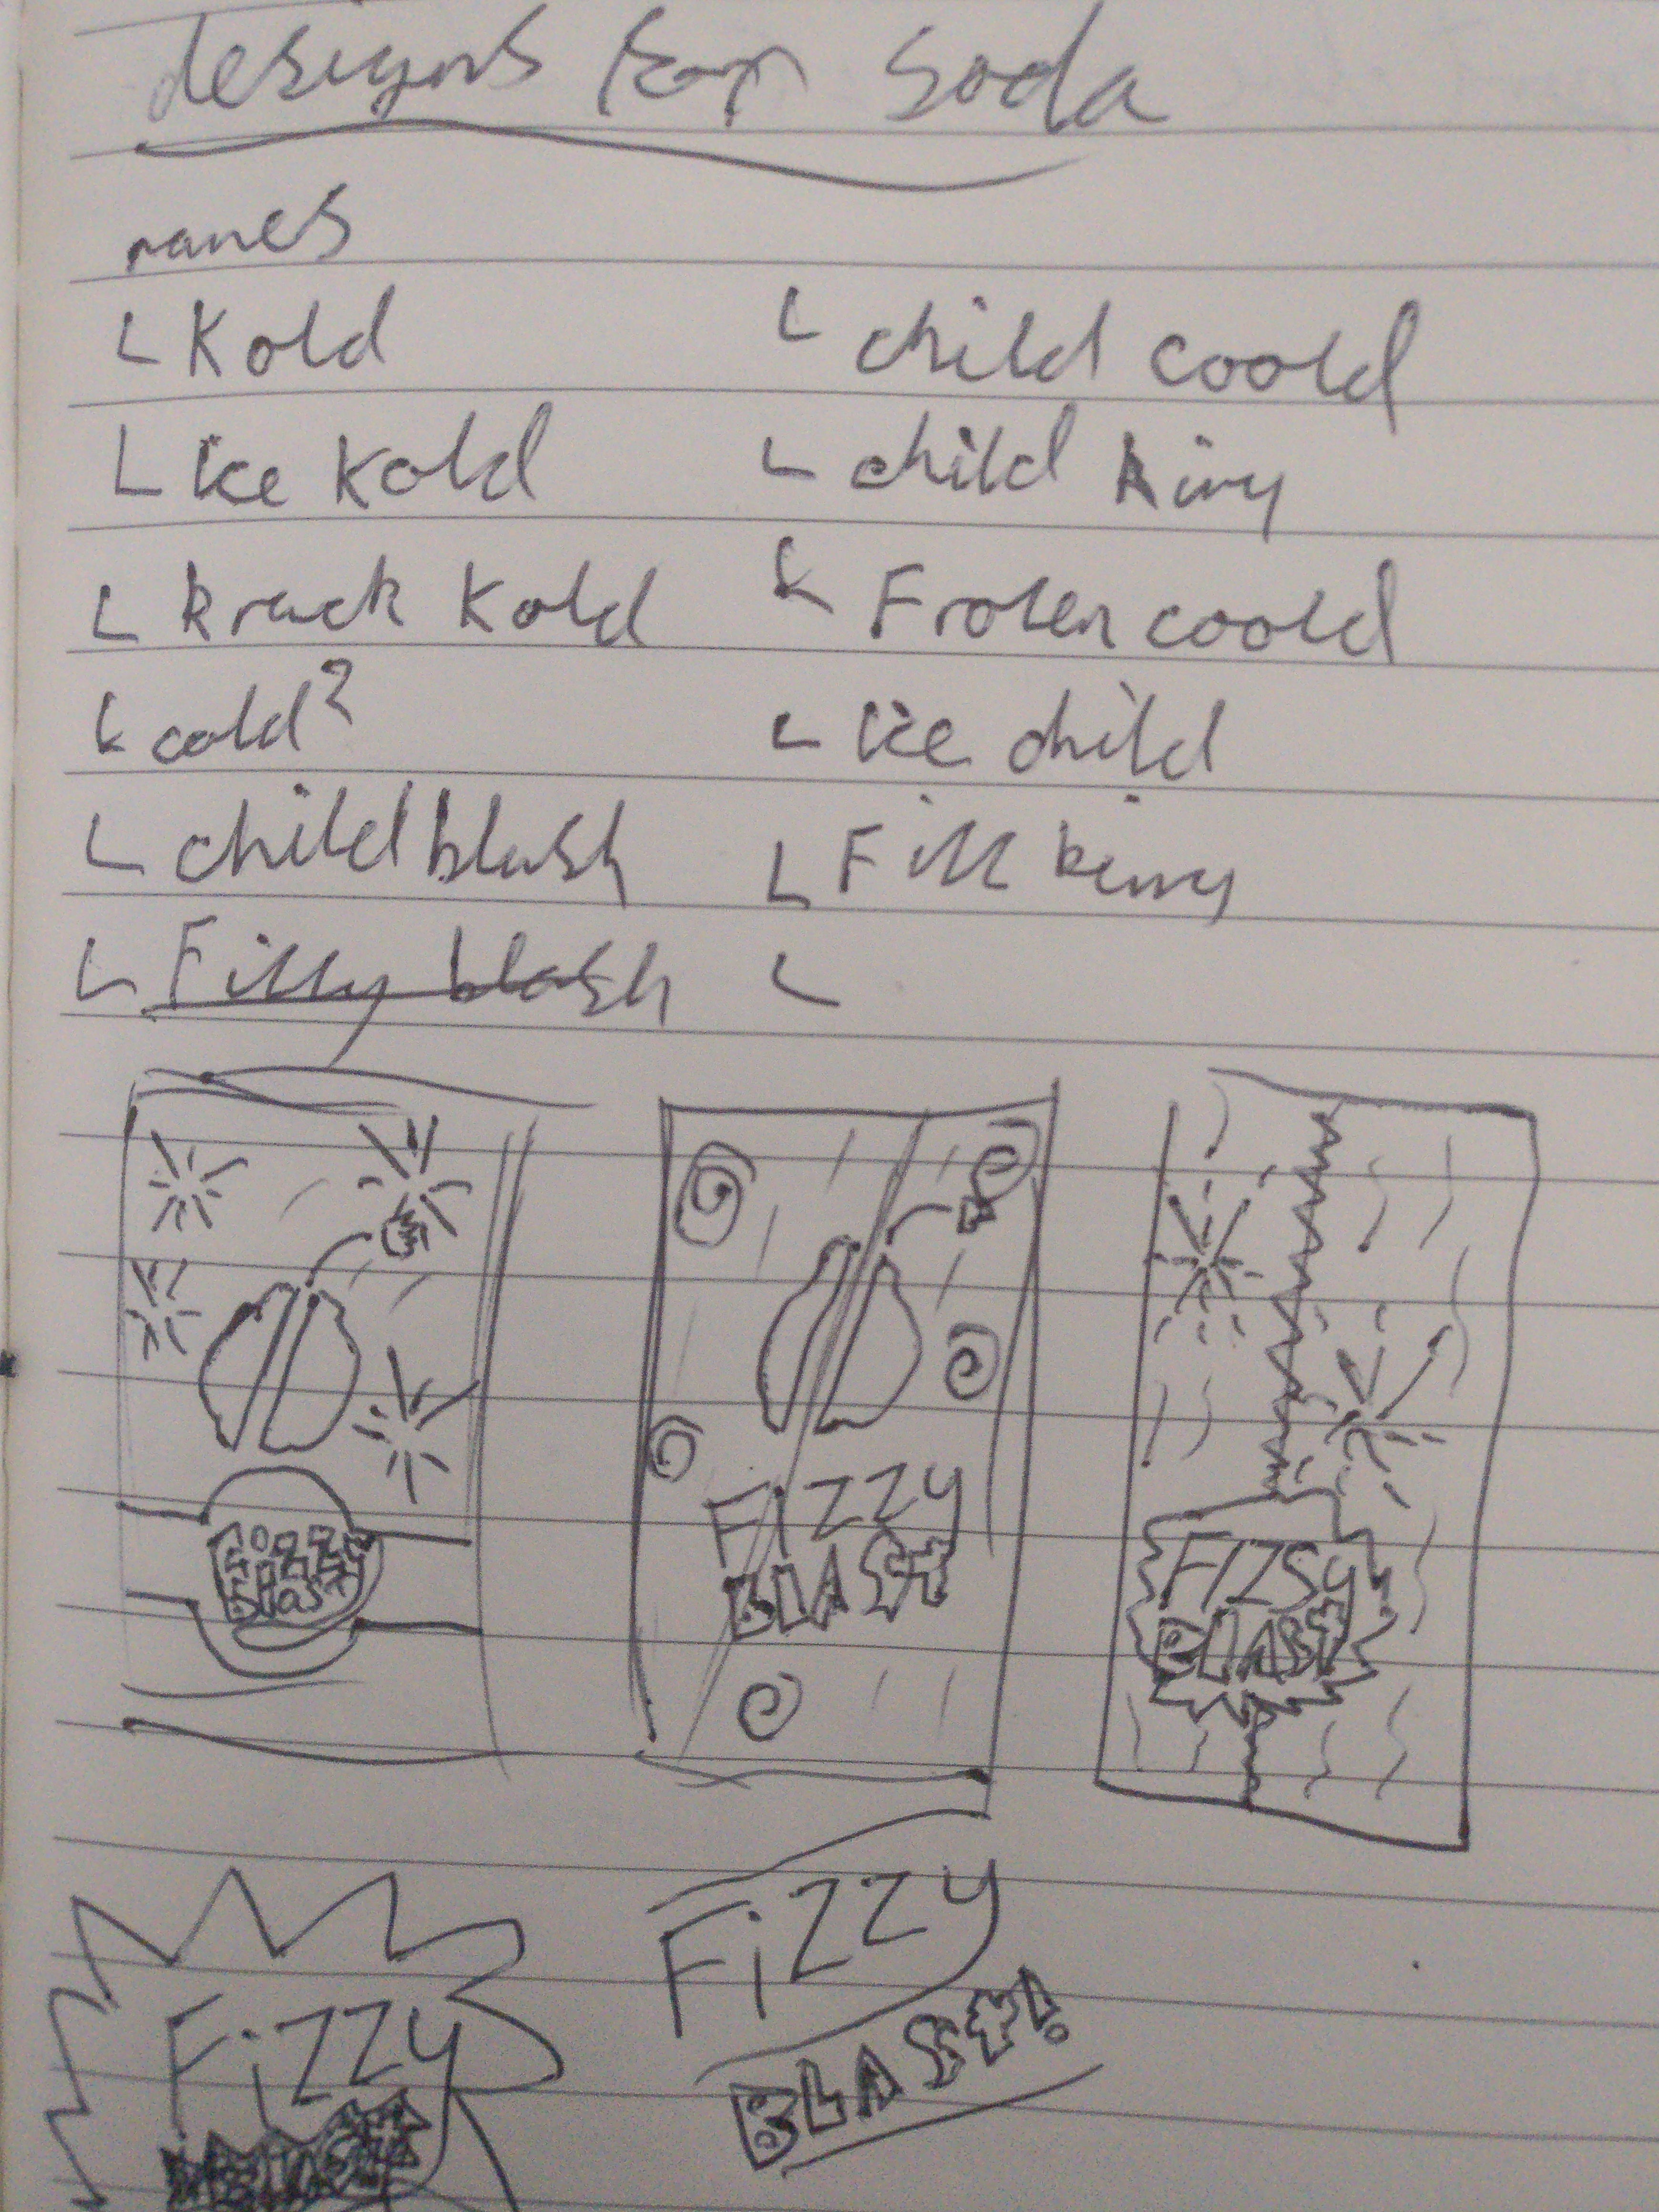 designs for soda
names
Kold
Ice Kold
Krack Kold
cold?
child blash
Fizzy blash
child coold
child
Frozen coold
Ice child
Fizz
Fizzy
Blast
Fizzy
BLAST
FIZSY
BLAST
Fizzy
Fizzy
BLAST!